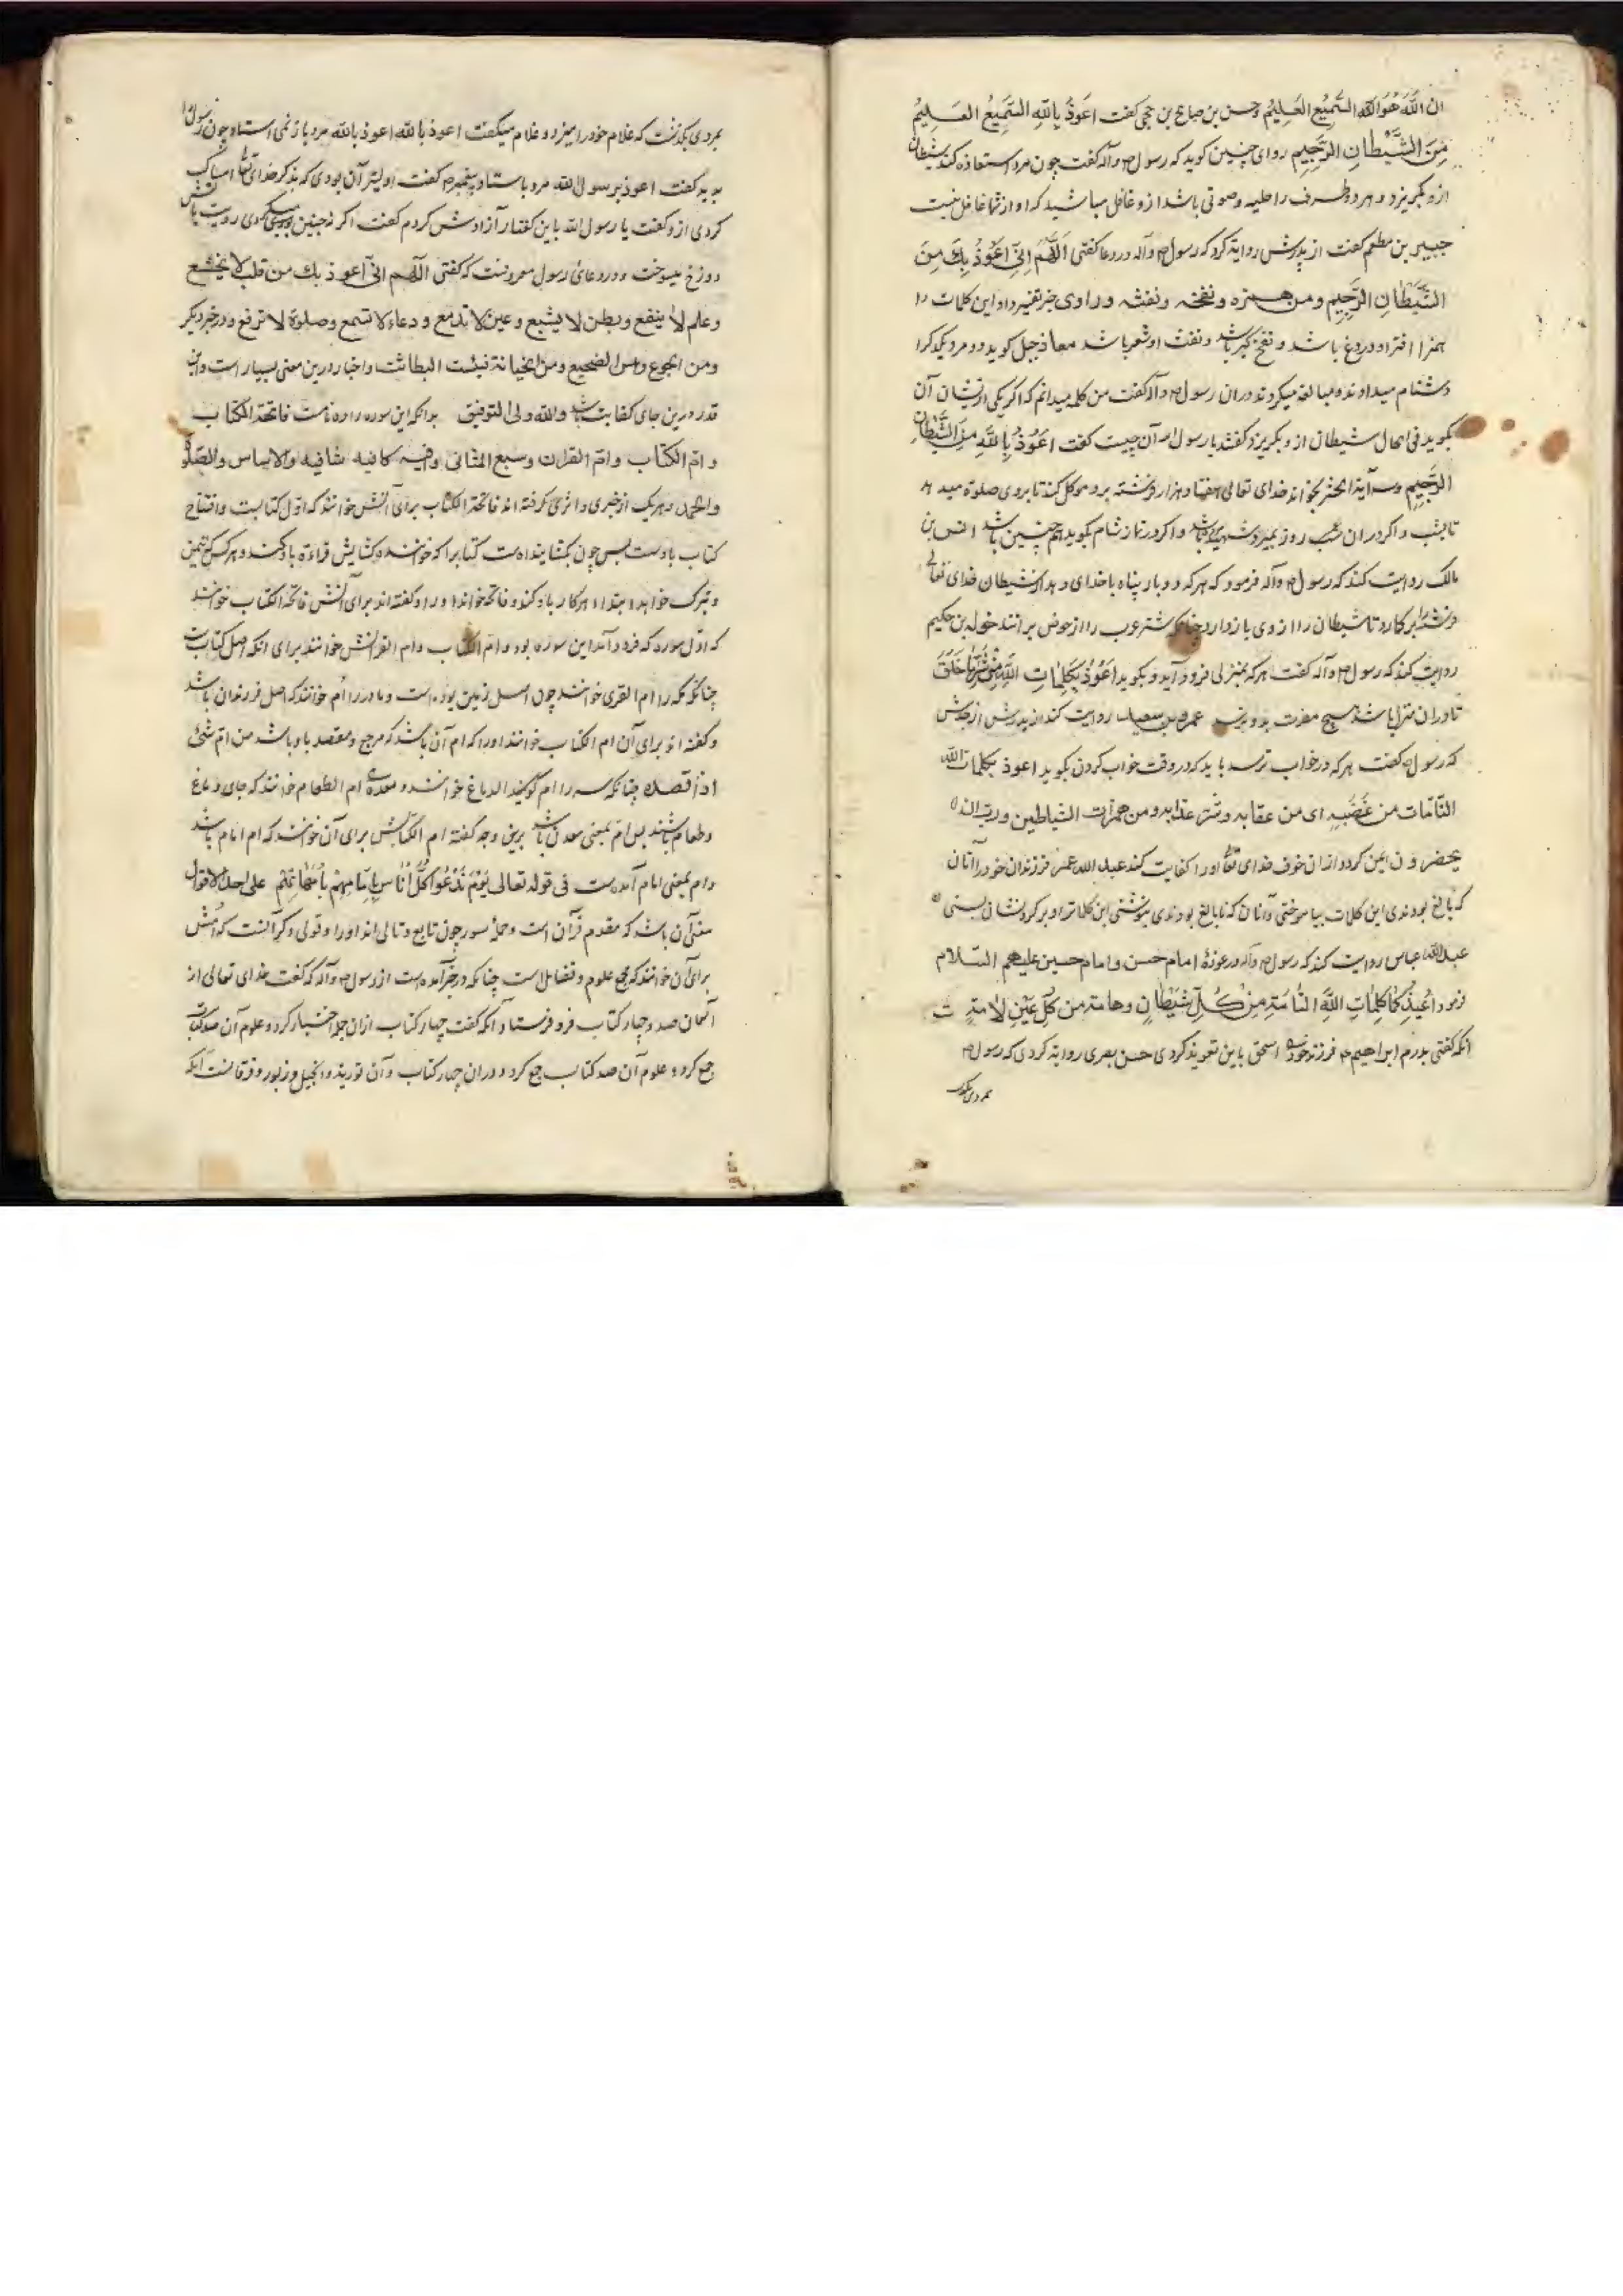 ان اللّه هُوَ اللّهِ السَّمِيعُ العَلِيمُ وحسن بن صالح بن حجی کفت اَعُوذُ بِاللّهِ السَّمِيعُ العَـلِيمُ
مِنَ الشَّيْطانِ الرَّجِيمِ روای چنین کوید که رسول ص وآله کفت چون مرد استعاذه کند شیطان
ازو بگریزد و هر دو طرف را حلیه وصوتی باشد ازو غافل مباشید که او از شما غافل نیست
جبیر بن مطعم کفت از پدرش روایة کرد که رسول ص وآله در دعا کفتی اَللّهُمَ اِنِّي اَعُوذُ بِكَ مِنَ
الشَّيْطانِ الرَّجِيمِ ومن همزه ونفخه ونفثه وراوی خبر تفسیر داد این کلمات را
همزا افترا و دروغ باشد و نفخ کبر باشد و نفث او شعر باشد معاذ جبل کوید دو مرد یکدکر را
دشنام میدادند و مبالغه میکردند دران رسول ص وآله کفت من کلمه میدانم که اکر یکی ازیشان آن
بکوید فی الحال شیطان ازو بکریزد کفتند یا رسول الله آن چیست کفت اَعُوذُ بِاللّهِ مِنَ الشَّيْطانِ
الرَّجِيمِ وسه آیة الحشر بخواند خدای تعالی هفتاد هزار فرشته برو موکل کند تا بروی صلوة میدهد
تا بشب و اکر دران شب روز بمیرد شهید باشد و اکر در نماز شام بکوید هم چنین باشد انس بن
مالک روایت کند که رسول ص وآله فرمود که هر که دو بار پناه با خدای دهد از شیطان خدای تعالی
فرشته برکارد تا شیطان را از وی بازدارد چنانکه شتر عرب را از حوض برانند خوله بن حکیم
روایت کند که رسول ص وآله کفت هر که بمنزلی فرود آید و بکوید اَعُوذُ بِکَلِمَاتِ اللّهِ مِنْ شَرِّ مَا خَلَقَ
تا دران منزل باشد هیچ مضرت بدو نرسد عمرو بن سعید روایت کند از پدرش از جدش
که رسول ص کفت هر که در خواب ترسد باید که در وقت خواب کردن بکوید اعوذ بکلمات اللّه
التّامّات من غَضَبِهِ ای من عقابه وشر عذابه ومن همزات الشیاطین ورب ان
یحضرون ایمن کردد ازان خوف خدای تعالی او را کفایت کند عبد اللّه عمر فرزندان خود را آنان
که بالغ بودندی این کلمات بیاموختی وآنان که نابالغ بودندی بنوشتی این کلمات را و بر کردنشان بستی
عبد اللّه عباس روایت کند که رسول ص وآله در عوذۀ امام حسن و امام حسین علیهم السّلام
فرمود اُعِیذُ کُمَا کَلِمَاتِ اللّهِ التَّامَّةِ مِنْ کُـلِّ شَيْطَانٍ وهامة ومن کُلِّ عَيْنٍ لَامَّةٍ
آنکه کفتی پدرم ابراهیم ع فرزند خود اسحق باین تعویذ کردی حسن بصری روایة کردی که رسول ص
بمردی بکذشت
بمردی بکذشت که غلام خود را میزد و غلام میکفت اعوذ باللّه اعوذ باللّه مرد باز نمی استاد چون رسول را
بدید کفت اعوذ برسول اللّه مرد باستاد پیغمبر ص کفت اولیتر آن بودی که بذکر خدای تعالی امساک
کردی ازو کفت یا رسول اللّه باین کفتار آزادش کردم کفت اکر نه چنین میکردی رویت باتش
دوزخ میسوخت و در دعای رسول معروفست که کفتی اَللّهُم اِنّي اَعوذ بك من قلب لا یخشع
وعلم لا ینفع وبطن لا یشبع وعین لا تدمع ودعاء لا تسمع وصلوة لا ترفع و در خبر دیکر
ومن الجوع ومن الضجیع ومن الخیانة فبئست البطانة واخبار درین معنی بسیار است واین
قدر درین جای کفایت باشد واللّه ولی التوفیق بدانکه این سوره را ده نامست فاتحة الکتاب
و امّ الکتاب وامّ القران وسبع المثانی وافیه کافیه شافیه والاساس والصّلوة
والحمد وهر یک از خبری واثری کرفته اند فاتحة الکتاب برای آنش خوانند که اوّل کتابست وافتتاح
کتاب بادوست پس چون بکشاینده است کتابرا که خواننده کشایش قراءة بادو کند و هر کس که تیمن
وتبرک خواهد ابتداء هر کار بادو کند و فاتحه خواند او را و کفته اند برای آنش فاتحة الکتاب خوانند
که اوّل سوره که فرود آمد این سوره بود وام الکتاب وام القرانش خوانند برای آنکه اصل کتابست
چنانکه مکه را ام القری خوانند چون اصل زمین بوده است و مادر را اُم خوانند که اصل فرزندان باشد
و کفته اند برای آن ام الکتاب خوانند او را که ام آن باشد که مرجع ومقصد با او باشد من امّ شئ
اذا قصده چنانکه سر را ام کویند الدماغ خوانند و معده را ام الطعام خوانند که جای دماغ
وطعام باشند پس امّ بمعنی معدن باشد برین وجه کفته ام الکتابش برای آن خوانند که ام امام باشد
وام بمعنی امام آمده است فی قوله تعالی یَوْمَ نَدْعُوا کُلَّ اُنَاسٍ بِاِمَامِهِمْ بِأُمَّهَاتِهِمْ علی احد الاقوال
معنی آن باشد که مقدم قرآن است و جملۀ سور چون تابع وتالی اند او را وقولی دکر آنست که اُمّش
برای آن خوانند که مجمع علوم وفضایل است چنانکه در خبر آمده است از رسول ص وآله که کفت خدای تعالی از
آسمان صد وچهار کتاب فرو فرستاد آنکه کفت چهار کتاب ازان جمله اختیار کرد و علوم آن صد کتاب
جمع کرد و علوم آن صد کتاب جمع کرد دران چهار کتاب و آن توریة وانجیل وزبور وفرقانست آنکه